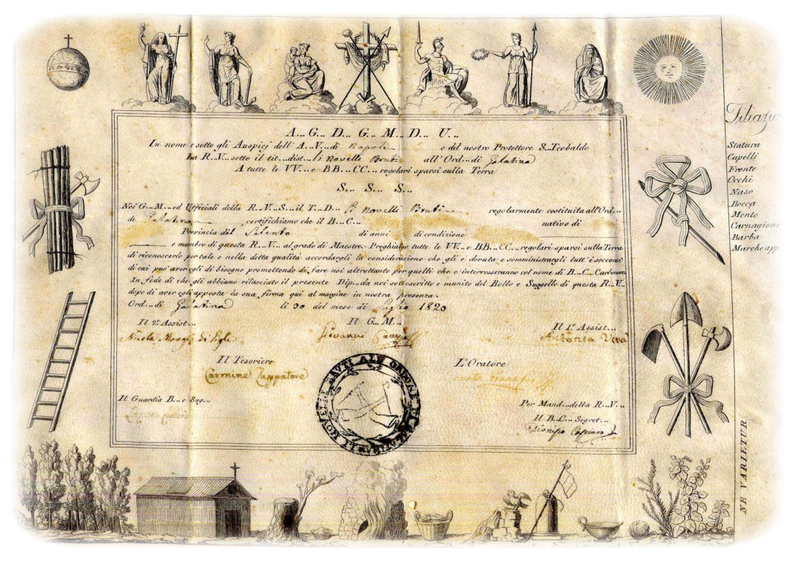 A... G... D... G... M... D... U...
In nome e sotto gli Auspicj dell'A... V... di Napoli e del nostro Protettore S... Teobaldo
La R... V... sotto il tit... dist... li Novelli Bruti all'Ord... di Galatina
A tutte le VV... e BB... CC... regolari sparsi sulla Terra
S... S... S...
Noi G... M... ed Ufficiali della R... V... S... il T... D... li Novelli Bruti regolarmente costituita all'Ord...
de Galatina certifichiamo che il B... C... nativo di
Provincia del Salento di anni di condizione
e membro di questa R... V... al grado di Maestro. Preghiamo tutte le VV... e BB... CC... regolari sparsi sulla Terra
di riconoscerlo per tale e nella detta qualità accordargli la considerazione che gli è dovuta e somministrargli tutt'i soccorsi
di cui può aver egli di bisogno promettendo di fare noi altrettanto per quelli che c'interesseranno col nome di B... C... Carbonari
In fede di che gli abbiamo rilasciato il presente Dip... da noi sottoscritto e munito del Bollo e Suggello di questa R... V...
dopo di aver egli apposta la sua firma qui al margine in nostra presenza.
Ord... di Galatina li 30 del mese di Luglio 1820
Il 2º Assist... Il G... M... Il 1º Assist...
Antonio Vira
Il Tesoriere L'Oratore
Carmine Zappatore
Il Guardia B... e Sug... Per Mand... della R... V...
Il B... C... Segret...
Filiazi
Statura
Capelli
Fronte
Occhi
Naso
Bocca
Mento
Carnagione
Barba
Marche app
NE VARIETUR